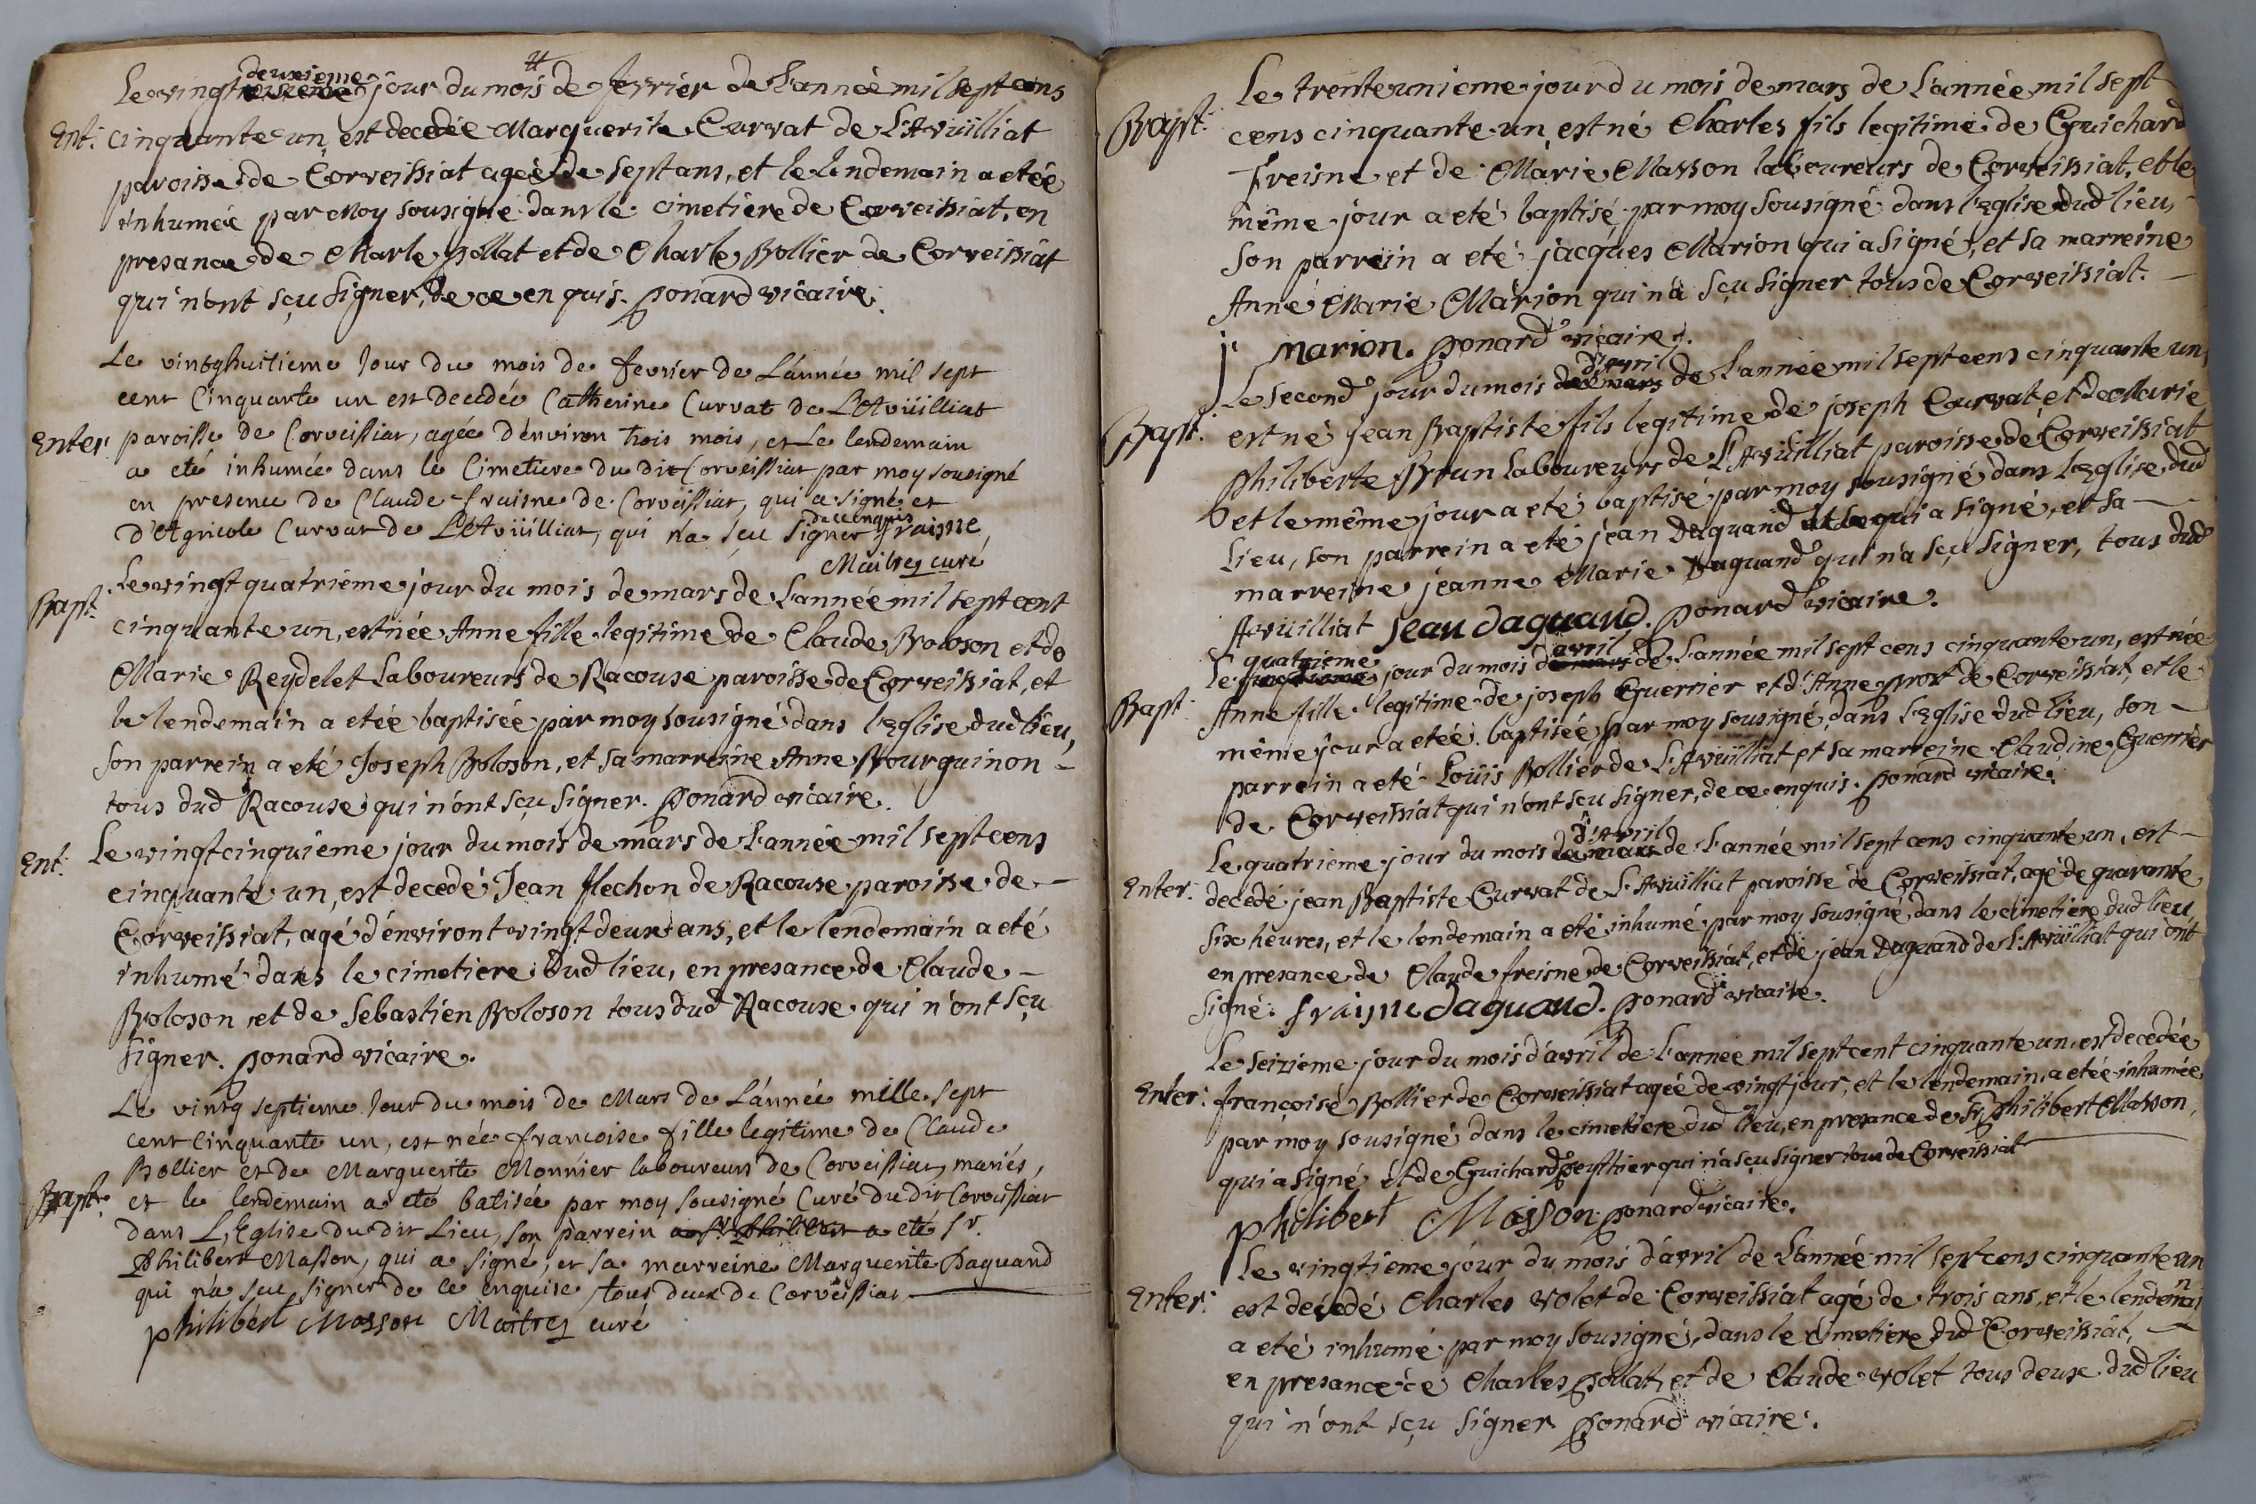 Le vingt deuxieme jour du mois de fevrier de L'année mil sept cens
Ent: cinquante un est decedée Marguerite Curvat de L'Avüilliat
paroisse de Corveissiat agée de sept ans, et le lendemain a etée
inhumée par Moy sousigné dans le cimetiere de Corveissiat, en
presance de Charle pollat et de Charle Bollier de Corveissiat
qui n'ont sçu signer, de ce enquis. ponard vicaire.
Le vintghuitieme Jour du mois de fevrier de L'année mil sept
cent Cinquante un est decedée Catherine Curvat de L'Avüilliat
Enter: paroisse de Corveissiat, agée d'environ trois mois, et Le lendemain
a eté inhumée dans le Cimetiere du dit Corveissiat par moy sousigné
en presence de Claude fraisne de Corveissiat, qui a signé et
d'Agricole Curvat de L'Avüilliat, qui n'a sçu signer de ce enquis fraisne
Maitrez curé
Bapt: Le vingt quatrieme jour du mois de mars de L'année mil sept cent
cinquante un, est née Anne fille legitime de Claude Boloson et de
Marie Reydelet Laboureurs de Racouse paroisse de Corveissiat, et
le lendemain a etée baptisée par moy sousigné dans l'Eglise dud lieu,
son parrein a eté Joseph Boloson, et sa marreine Anne Bourguinon -
tous dud Racouse qui n'ont sçu signer. ponard vicaire.
Ent: Le vingt cinquieme jour du mois de mars de L'année mil sept cens
cinquante un, est decedé Jean flechon de Racouse paroisse de -
Corveissiat, agé d'environt vingt deux ans, et le lendemain a eté
inhumé dans le cimetiere dud lieu, en presance de Claude -
Boloson et de Sebastien Boloson tous dud Racouse qui n'ont sçu
signer. ponard vicaire.
Le vintg septieme Jour du mois de Mars de L'année mille sept
cent Cinquante un, est née francoise fille legitime de Claude
Bollier et de Marguerite Monnier laboureurs de Corveissiat, mariés,
Bapt: et le lendemain a eté batisée par moy sousigné Curé du dit Corveissiat
dans L'Eglise du dit Lieu, son parrein a eté sr.
Philibert Masson, qui a signé, et sa marreine Marguerite Daguand
qui n'a sçu signer de ce enquise tous deux de Corveissiat
philibért Masson Maitrez curé
Le trente unieme jour du mois de mars de L'année mil sept
Bapt: cens cinquante un, est né Charles fils legitime de Guichard
Freisne et de Marie Masson laboureurs de Corveissiat, et le
même jour a eté baptisé par moy sousigné dans l'Eglise dud lieu,
Son parrein a eté jacques Marion qui a signé, et sa marreine
Anne Marie Marion qui n'a sçu signer tous de Corveissiat. -
j. Marion. ponard vicaire.
Le second jour du mois d'avril de L'année mil sept cens cinquante un,
Bapt: est né jean Baptiste fils legitime de joseph Curvat et de Marie
philiberte Brun Laboureurs de L'Avüilliat paroisse de Corveissiat
et le même jour a eté baptisé par moy sousigné dans L'Eglise dud
Lieu, son parrein a eté jean Daguand qui a signé, et sa -
marreine jeanne Marie Daguand qui n'a sçu signer, tous dud
Avüilliat Jean daguand. ponard vicaire.
Le quatrieme jour du mois d'avril de L'année mil sept cens cinquante un, est née
Bapt: Anne fille legitime de joseph Guerrier et d'Anne prost de Corveissiat, et le
même jour a etée baptisée par moy sousigné, dans L'Eglise dud lieu, son -
parrein a eté Loüis Bollier de L'Avüilliat et sa marreine Claudine Guerrier
de Corveissiat qui n'ont sçu signer, de ce enquis. ponard vicaire.
Le quatrieme jour du mois d'Avril de L'année mil sept cens cinquante un, est -
Enter: decedé jean Baptiste Curvat de L'Avüilliat paroisse de Corveissiat, agé de quarante
six heures, et le lendemain a eté inhumé par moy sousigné dans le cimetiere dud lieu,
en presance de Claude freisne de Corveissiat, et de jean Daguand de L'Avüilliat qui ont
signé. fraisne daguand. ponard vicaire.
Le seizieme jour du mois d'avril de L'année mil sept cent cinquante un, est decedée
Enter: françoise Bollier de Corveissiat agée de vingt jour, et le lendemain a etée inhumée
par moy sousigné dans le cimetiere dud lieu, en presance de Sr philibert Masson,
qui a signé et de Guichard peysthier qui n'a sçu signer tous de Corveissiat
philibert Masson ponard vicaire.
Le vingtieme jour du mois d'avril de L'année mil sept cens cinquante un
Enter: est decedé Charles volet de Corveissiat agé de trois ans, et le lendemain
a eté inhumé par moy sousigné, dans le cimetiere dud Corveissiat, -
en presance ce Charles pollat, et de Claude volet tous deux dud lieu
qui n'ont sçu signer ponard vicaire.